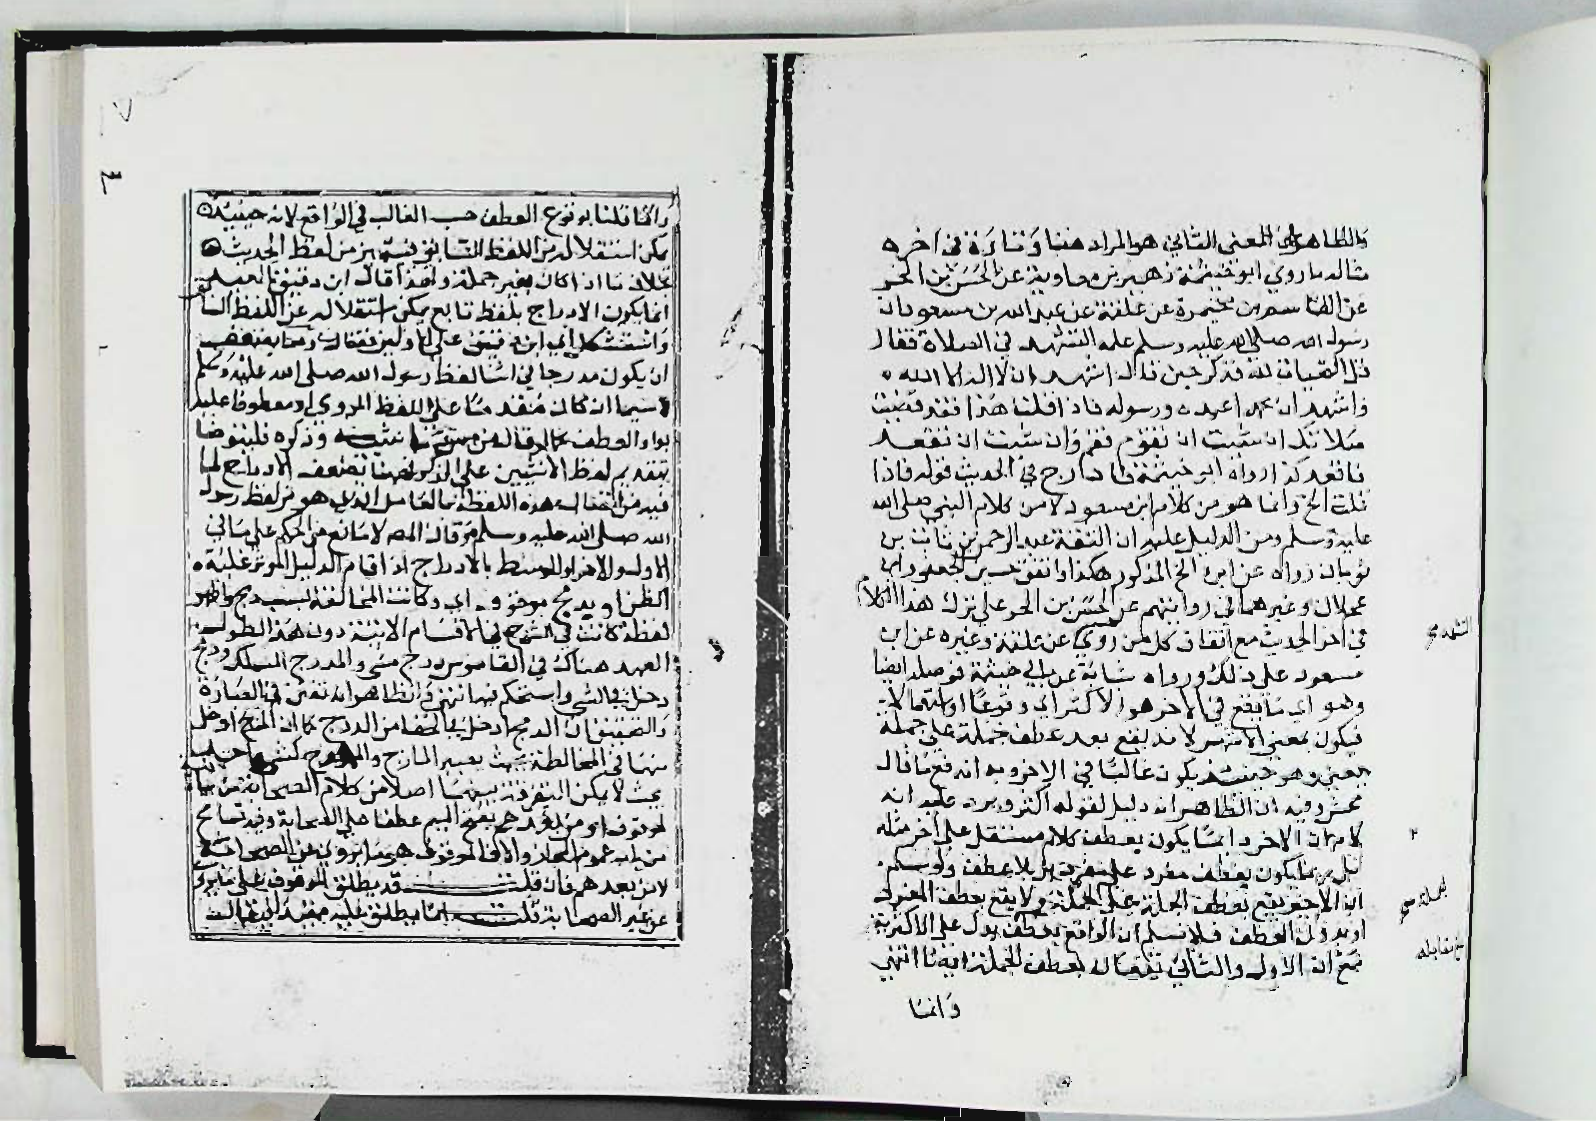 والظاهر ان المعنى الثاني هو المراد هنا وتارة في اخره
مثاله ما روي ابو خيثمة زهير بن معاوية عن الحسن بن الحر
عن القاسم بن مخيمرة عن علقمة عن عبد الله بن مسعود ان
رسول الله صلى الله عليه وسلم علمه التشهد في الصلاة فقال
قل التحيات لله فذكر حين قال اشهد ان لا اله الا الله
واشهد ان محمدا عبده ورسوله فاذا قلت هذا فقد قضيت
صلاتك ان شئت ان تقوم فقم وان شئت ان تقعد
فاقعد كذا رواه ابو خيثمة فادرج في الحديث قوله فاذا
قلت الخ وانما هو من كلام ابن مسعود لا من كلام النبي صلى الله
عليه وسلم ومن الدليل عليه ان الثقة عبد الرحمن بن ثابت بن
ثوبان رواه عن ابن الحر المذكور هكذا واتفق حسين الجعفي وابن
عجلان وغيرهما في روايتهم عن الحسن بن الحر على ترك هذا الكلام
في اخر الحديث مع اتفاق كل من روي عن علقمة وغيره عن ابن
التشهد صح
مسعود على ذلك ورواه شبابة عن ابي خيثمة فوصله ايضا
وهو اي ما يقع في الاخر هو الاكثر اي وقوعا
فيكون بمعنى الاشهر لانه يقع بعطف جملة على جملة
يعني وهو حينئذ يكون غالبا في الاخر وبه اندفع ما قال
محشي وفيه ان الظاهر انه دليل لقوله اكثر ويرد عليه انه
كما ان الاخر دائما يكون بعطف كلام مستقل على اخر مثله
بل ربما يكون بعطف مفرد على مفرد بل بلا عطف ولو سلم
ان الاخر يقع بعطف الجملة على الجملة ولا يقع بعطف المفرد
بجملة صح
او بدون العطف فلا نسلم ان الواقع بعطف يدل على الاكثرية
مع ان الاول والثاني يقعان بعطف الجملة ايضا انتهى
وانما
وانما قلنا بوقوع العطف حسب الغالب في الواقع لانه حينئذ
يمكن استقلاله من اللفظ السابق فيتميز من لفظ الحديث
بخلاف ما اذا كان بغير جملة ولهذا قال ابن دقيق العيد
انما يكون الادراج بلفظ تابع يمكن استقلاله عن اللفظ السا
واستشكل اي ابن دقيق على الاولين فقال ومما يضعف
ان يكون مدرجا في اثنا لفظ رسول الله صلى الله عليه وسلم
لا سيما ان كان مقدما على اللفظ المروي او معطوفا عليه
بواو العطف كما لو قال من مس انثييه وذكره فليتوضا
بتقديم لفظ الانثيين على الذكر فههنا يضعف الادراج لما
فيه من اتصال هذه اللفظة بالعامل الذي هو من لفظ رسول
الله صلى الله عليه وسلم وقال المص لا مانع من الحكم على ما في
الاول والاخر او الوسط بالادراج اذا قام الدليل الموثر غلبة
الظن او بدمج موقوف اي او كانت المخالفة بسبب دمج
لفظة كانت في الشرح في الاقسام الاتية دون هذه الطول
العهد هناك في القاموس دمج
دخل في الشي واستحكم فيه انتهى والظاهر انه تفنن في العبارة
والتحقيق ان الدمج ادخل في الخفا من الدرج كما ان المزج ادخل
منها في المخالطة بحيث يصير المازج والممزوج كشي واحد
بحيث لا يمكن التفرقة بينهما اصلا من كلام الصحابة من بيانية
لموقوف او من بعدهم بفتح الميم عطفا على الصحابة وفيه تسامح
من باب عموم المجاز والا فالموقوف هو ما يروي عن الصحابة
لا من بعدهم فان قلت قد يطلق الموقوف على ما يروي
عن غير الصحابة قلت انما يطلق عليه مقيدا